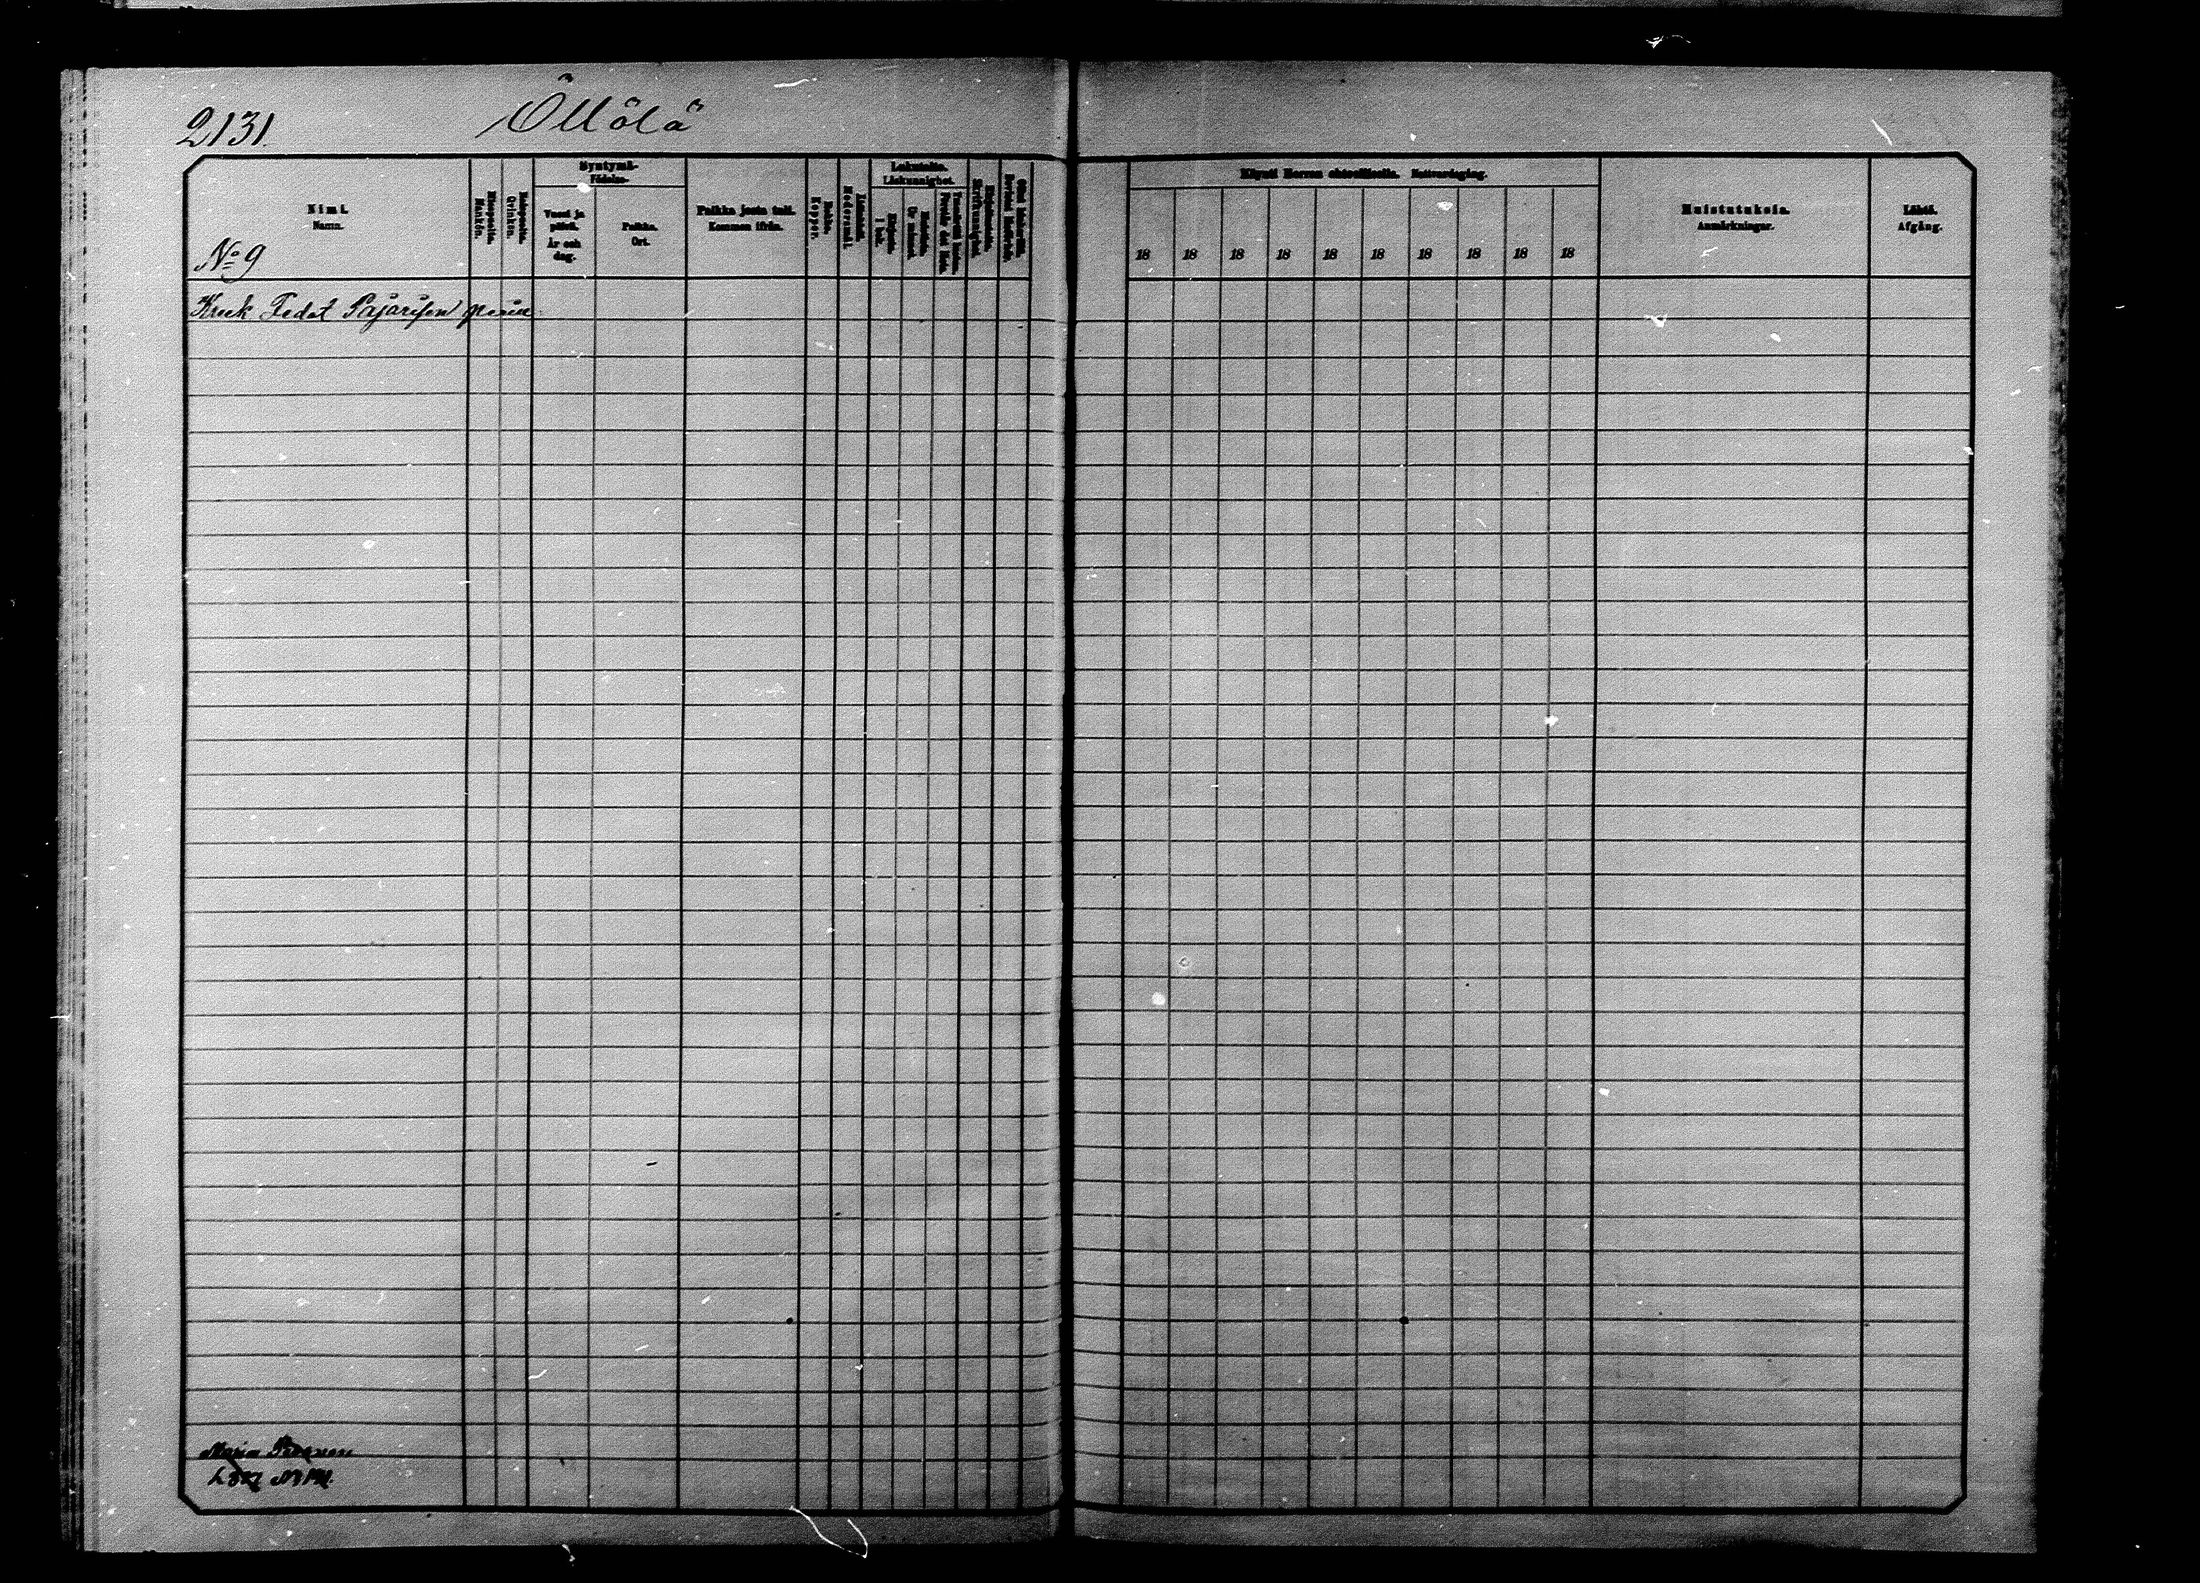 2131.
Öllölä
Nimi.
Namn.
No 9
Miespuolia.
Mankön.
Vaimopuolia.
Qvinkön.
Syntymä-
Födelse-
Vuosi ja
päivä.
År och
dag.
Paikka.
Ort.
Paikka josta tuli.
Kommen ifrån.
Rokko.
Koppor.
Lukutaito.
Läskunnighet.
Käynyt Herran ehtoollisella. Nattvardsgång.
18 18 18 18 18 18 18 18 18 18
Muistutuksia.
Anmärkningar.
Lähtö.
Afgång.
Kruk Fedot Pajarisen perill
Maria